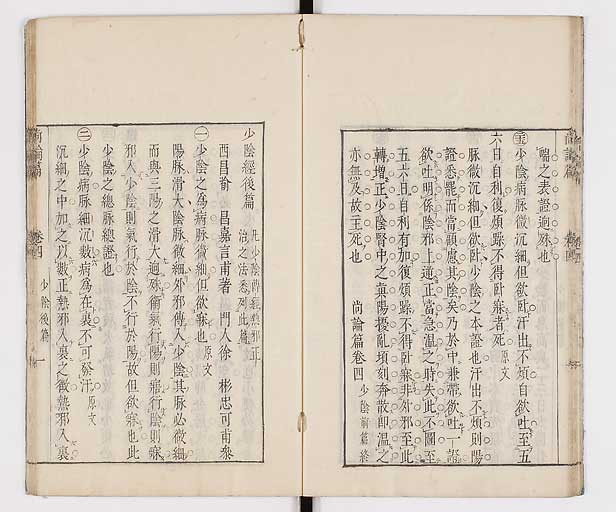 喘之表證迥殊也
㊂五少陰病脉微沉細但欲臥汗出不煩自欲吐至五
六日自利復煩躁不得臥寐者死 原文
脉微沉細但欲臥少陰之本證也汗出不煩則陽
證悉罷而當顧慮其陰矣乃於中兼帶欲吐一證
欲吐明係陰邪上逆正當急溫之時失此不圖至
五六日自利有加復煩躁不得臥寐非外邪至此
轉增正少陰腎中之真陽擾亂頃刻奔散即溫之
亦無及故主死也
尚論篇卷四 少陰前篇終
少陰經後篇 凡少陰傳經熱邪正治之法悉列此篇
西昌喻 昌嘉言甫著 門人徐 彬忠可甫參
㊀少陰之為病脉微細但欲寐也 原文
陽脉滑大陰脉微細外邪傳入少陰其脉必微細
而與三陽之滑大迥殊衛氣行陽則寤行陰則寐
邪入少陰則氣行於陰不行於陽故但欲寐也此
少陰之總脉總證也
㊁少陰病脉細沉數病為在裏不可發汗 原文
沉細之中加之以數正熱邪入裏之徵熱邪入裏
尚論篇 卷四 少陰後篇 一